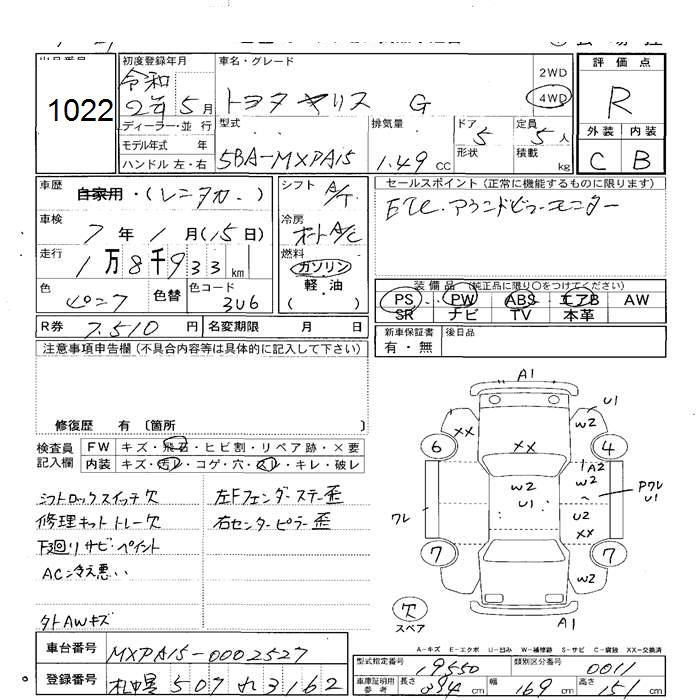 1022
初度登録年月
令和
2年5月
ディーラー・並行
モデル年式 年
ハンドル左・右
車名・グレード
トヨタ ヤリス G
2WD
4WD
型式
5BA-MXPA15
排気量
1.49 CC
ドア
5
形状
定員
5人
積載
kg
評価点
R
外装 内装
C B
車歴
自家用・(レンタカー)
車検
7年1月(15日)
走行
1万8千933km
色
色替
色コード
3U6
シフト
A/T
冷房
オートA/C
燃料
ガソリン
軽・油
( )
セールスポイント(正常に機能するものに限ります)
ETC.アラウンドビューモニター
装備品(純正品に限り○をつけてください)
PS PW ABS エアB AW
SR ナビ TV 本革
R券 7,510円
名変期限 月 日
新車保証書
有・無
後日品
注意事項申告欄(不具合内容等は具体的に記入して下さい)
修復歴 有〔箇所 〕
検査員
記入欄
FW キズ・飛石・ヒビ割・リペア跡・×要
内装 キズ・汚レ・コゲ・穴・スレ・キレ・破レ
シフトロックスイッチ欠
修理キットトレー欠
下廻りサビ・ペイント
AC冷え悪い
タトAWキズ
左Fフェンダーステー歪
右センターピラー歪
A1
U1
W2
XX
XX
6
4
A2
W2
W2
U1
PワレU1
ワレ
U2
XX
7
7
W2
欠
スペア
A1
A-キズ E-エクボ U-凹み W-補修跡 S-サビ C-腐蝕 XX-交換済
車台番号 MXPA15-0002527
登録番号 札幌 507 れ 3162
型式指定番号 19550
類別区分番号 0011
車庫証明用
参考
長さ 394cm
幅 169cm
高さ 151cm